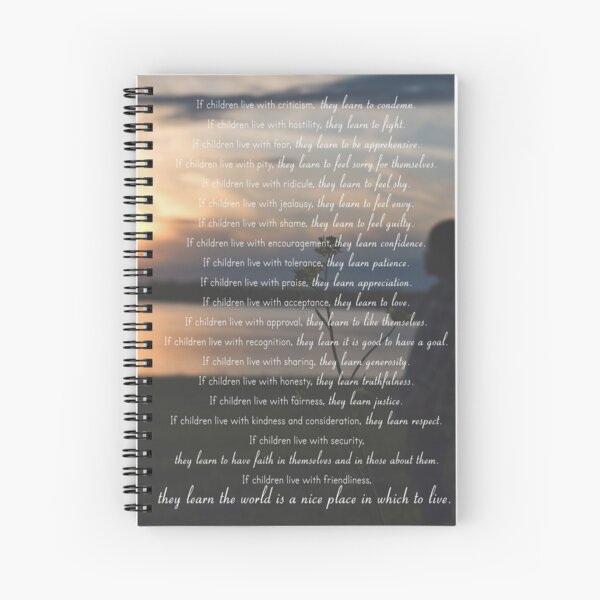 If children live with criticism, they learn to condemn.
If children live with hostility, they learn to fight.
If children live with fear, they learn to be apprehensive.
If children live with pity, they learn to feel sorry for themselves.
If children live with ridicule, they learn to feel shy.
If children live with jealousy, they learn to feel envy.
If children live with shame, they learn to feel guilty.
If children live with encouragement, they learn confidence.
If children live with tolerance, they learn patience.
If children live with praise, they learn appreciation.
If children live with acceptance, they learn to love.
If children live with approval, they learn to like themselves.
If children live with recognition, they learn it is good to have a goal.
If children live with sharing, they learn generosity.
If children live with honesty, they learn truthfulness.
If children live with fairness, they learn justice.
If children live with kindness and consideration, they learn respect.
If children live with security,
they learn to have faith in themselves and in those about them.
If children live with friendliness,
they learn the world is a nice place in which to live.